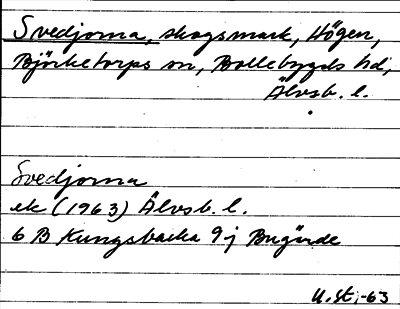 Svedjorna, skogsmark, Högen,
Björketorps sn, Bollebygds hd,
Älvsb. l.
Svedjorna
ek (1963) Älvsb. l.
6 B Kungsbacka 9j Bugärde
U.St.-63